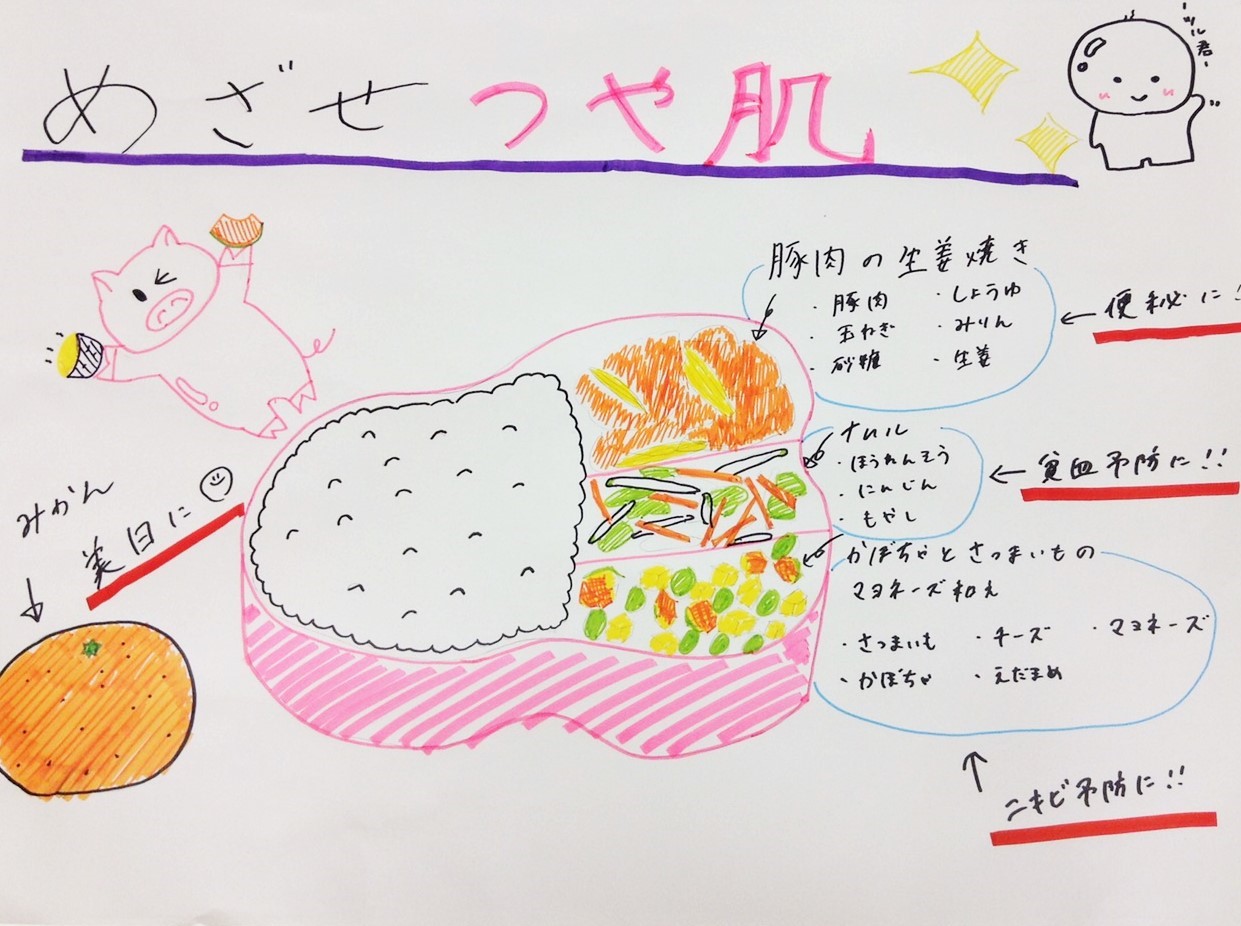 めざせつや肌
ツル君
豚肉の生姜焼き
・豚肉 ・しょうゆ
玉ねぎ ・みりん
・砂糖 ・生姜
← 便秘に!
ナムル
・ほうれんそう
・にんじん
・もやし
← 貧血予防に!!
かぼちゃとさつまいもの
マヨネーズ和え
・さつまいも ・チーズ ・マヨネーズ
・かぼちゃ ・えだまめ
ニキビ予防に!!
みかん
美白に